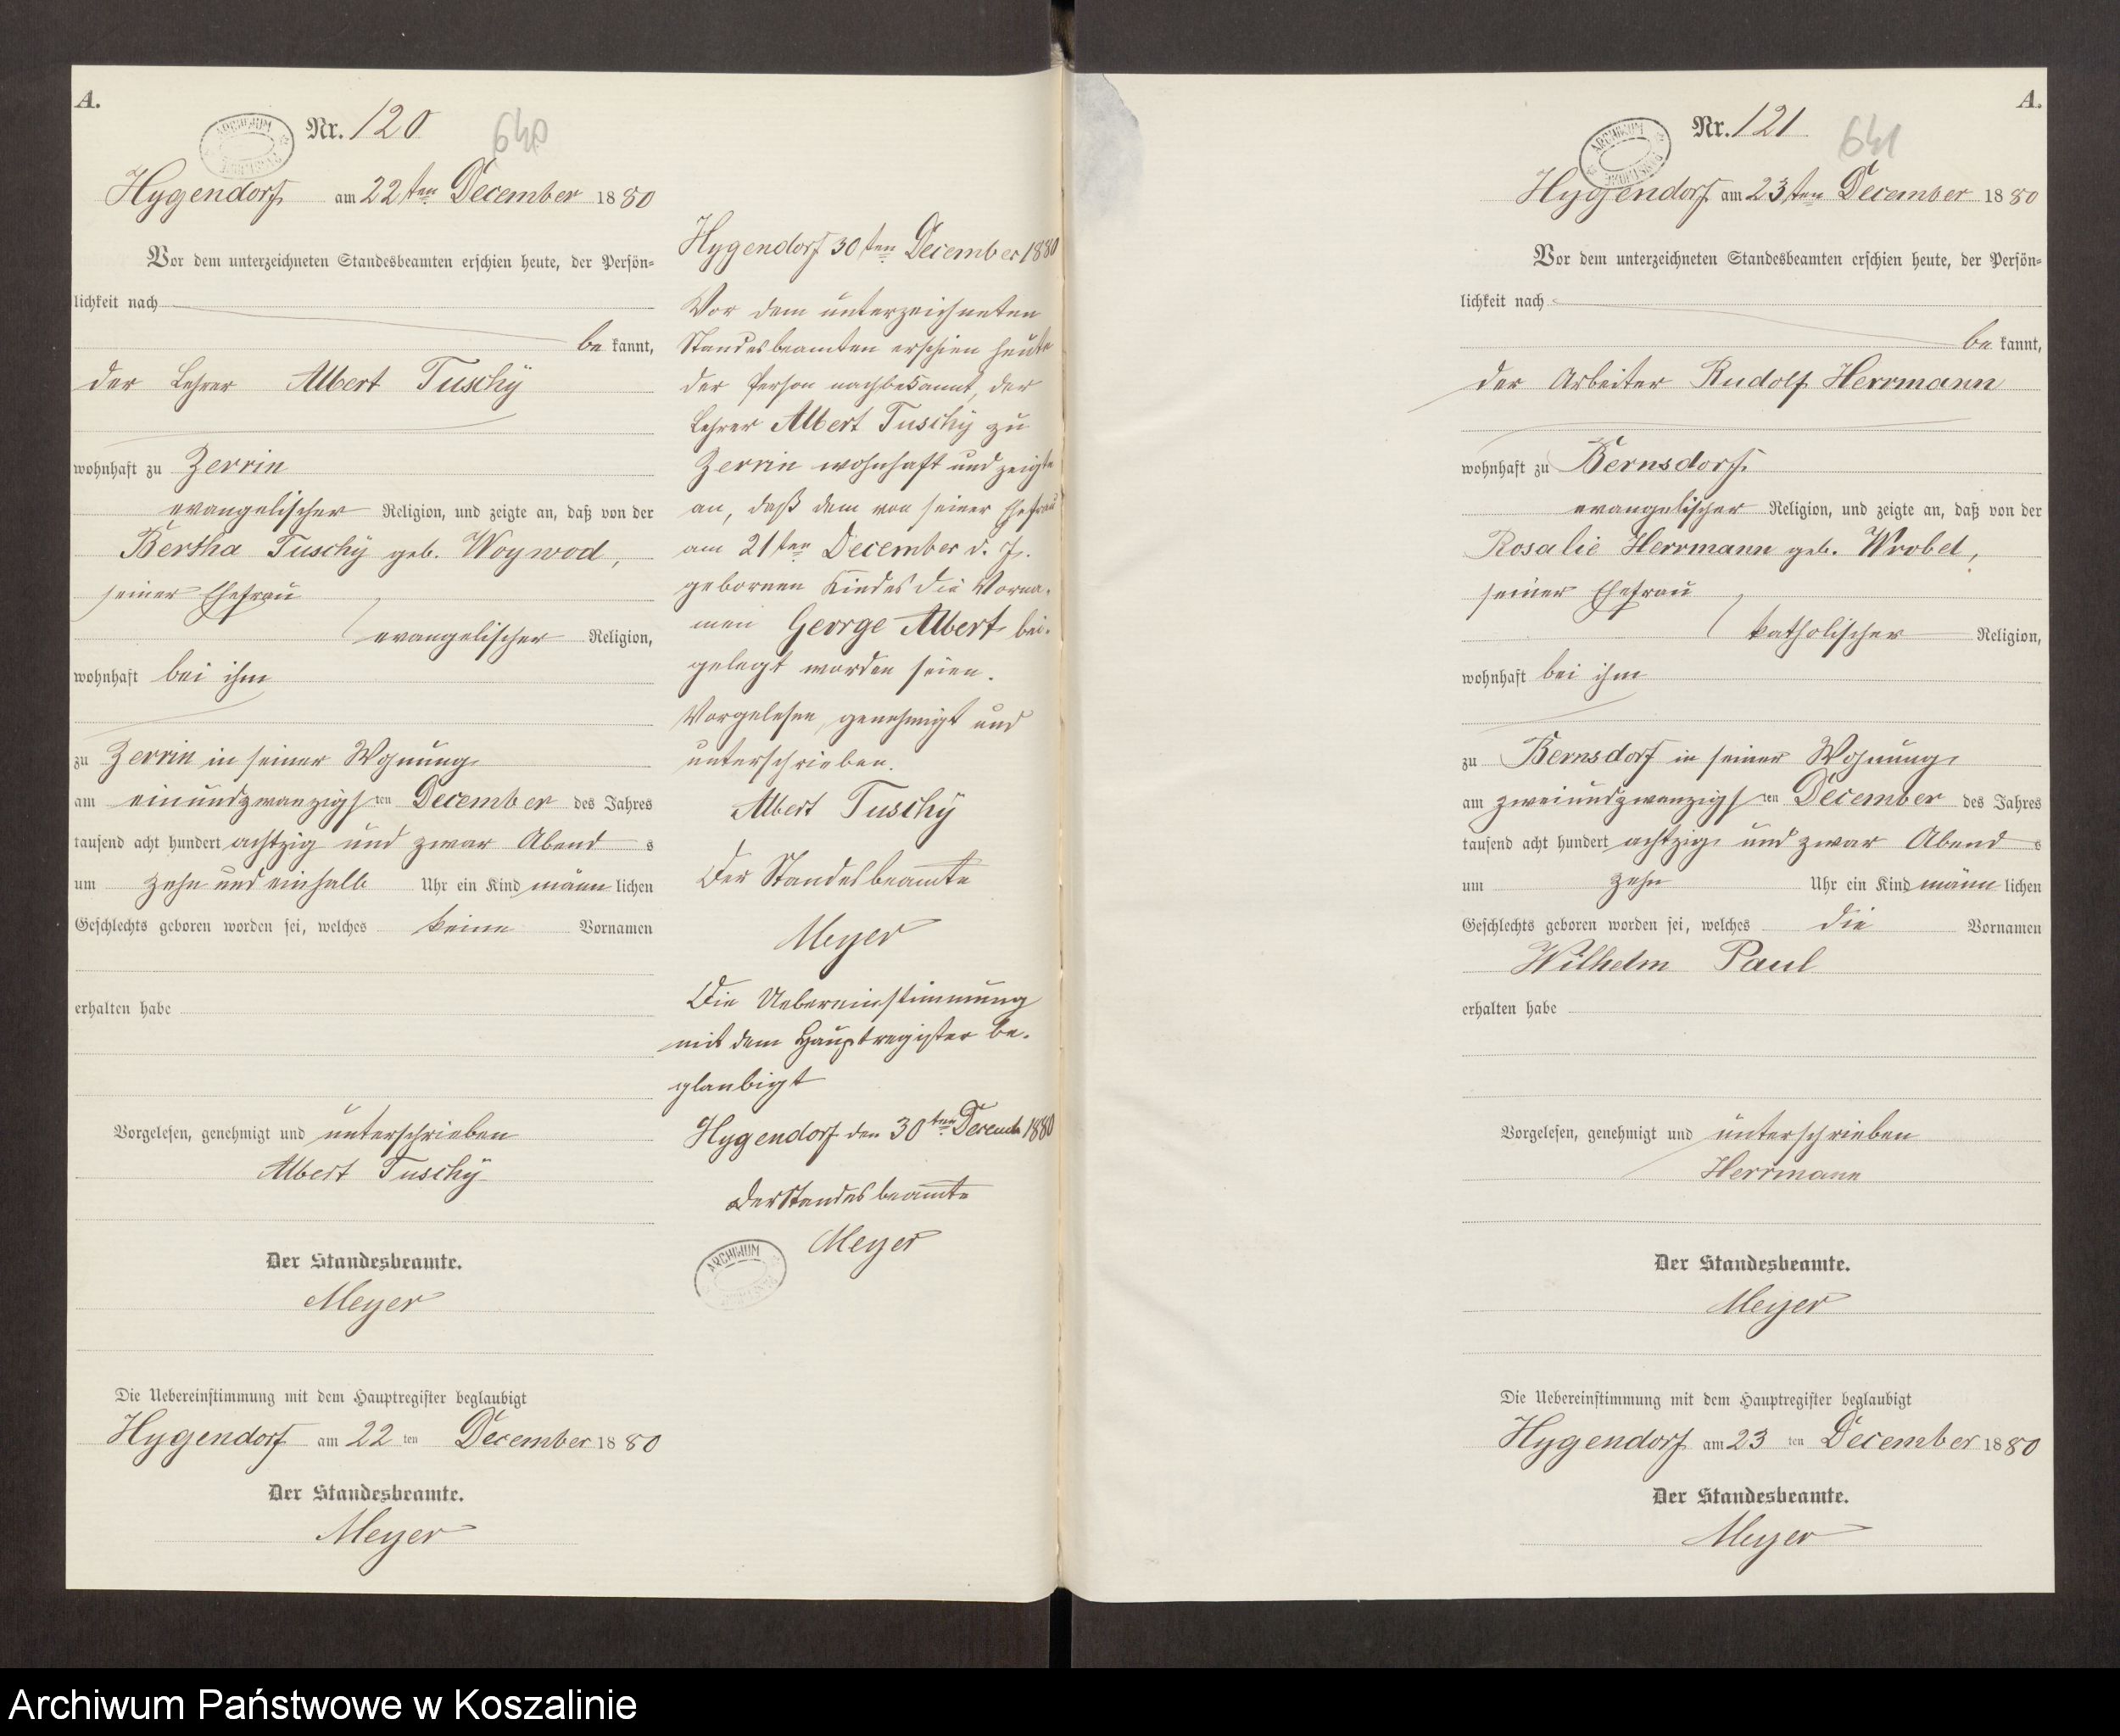 A.
Nr. 120
640
Hygendorf am 22ten December 1880
Vor dem unterzeichneten Standesbeamten erschien heute, der Persön=
lichkeit nach
be kannt,
der Lehrer Albert Tuschÿ
wohnhaft zu Zerrin
evangelischer Religion, und zeigte an, daß von der
Bertha Tuschÿ geb. Woywod,
seiner Ehefrau
evangelischer Religion,
wohnhaft bei ihm
zu Zerrin in seiner Wohnung
am einundzwanzigsten December des Jahres
tausend acht hundert achtzig und zwar Abend s
um zehn und einhalb Uhr ein Kind männ lichen
Geschlechts geboren worden sei, welches keine Vornamen
erhalten habe
Vorgelesen, genehmigt und unterschrieben
Albert Tuschÿ
Der Standesbeamte.
Meyer
Die Uebereinstimmung mit dem Hauptregister beglaubigt
Hygendorf am 22 ten December 1880
Der Standesbeamte.
Meyer
Hygendorf 30ten December 1880
Vor dem unterzeichneten
Standesbeamten erschien heute
der Person nach bekannt, der
Lehrer Albert Tuschÿ zu
Zerrin wohnhaft und zeigte
an, daß dem von seiner Ehefrau
am 21ten December d. J.
gebornen Kindes die Vorna-
men George Albert bei-
gelegt worden seien.
Vorgelesen, genehmigt und
unterschrieben.
Albert Tuschÿ
Der Standesbeamte
Meyer
Die Uebereinstimmung
mit dem Hauptregister be-
glaubigt
Hygendorf den 30ten Decemb 1880
Der Standesbeamte
Meyer
ARCHIWUM
A.
Nr. 121
641
Hygendorf am 23ten December 1880
Vor dem unterzeichneten Standesbeamten erschien heute, der Persön=
lichkeit nach
be kannt,
der Arbeiter Rudolf Herrmann
wohnhaft zu Bernsdorf
evangelischer Religion, und zeigte an, daß von der
Rosalie Herrmann geb. Wrobel,
seiner Ehefrau
katholischer Religion,
wohnhaft bei ihm
zu Bernsdorf in seiner Wohnung
am zweiundzwanzigsten December des Jahres
tausend acht hundert achtzig und zwar Abend s
um zehn Uhr ein Kind männ lichen
Geschlechts geboren worden sei, welches die Vornamen
Wilhelm Paul
erhalten habe
Vorgelesen, genehmigt und unterschrieben
Herrmann
Der Standesbeamte.
Meyer
Die Uebereinstimmung mit dem Hauptregister beglaubigt
Hygendorf am 23 ten December 1880
Der Standesbeamte.
Meyer
Archiwum Państwowe w Koszalinie